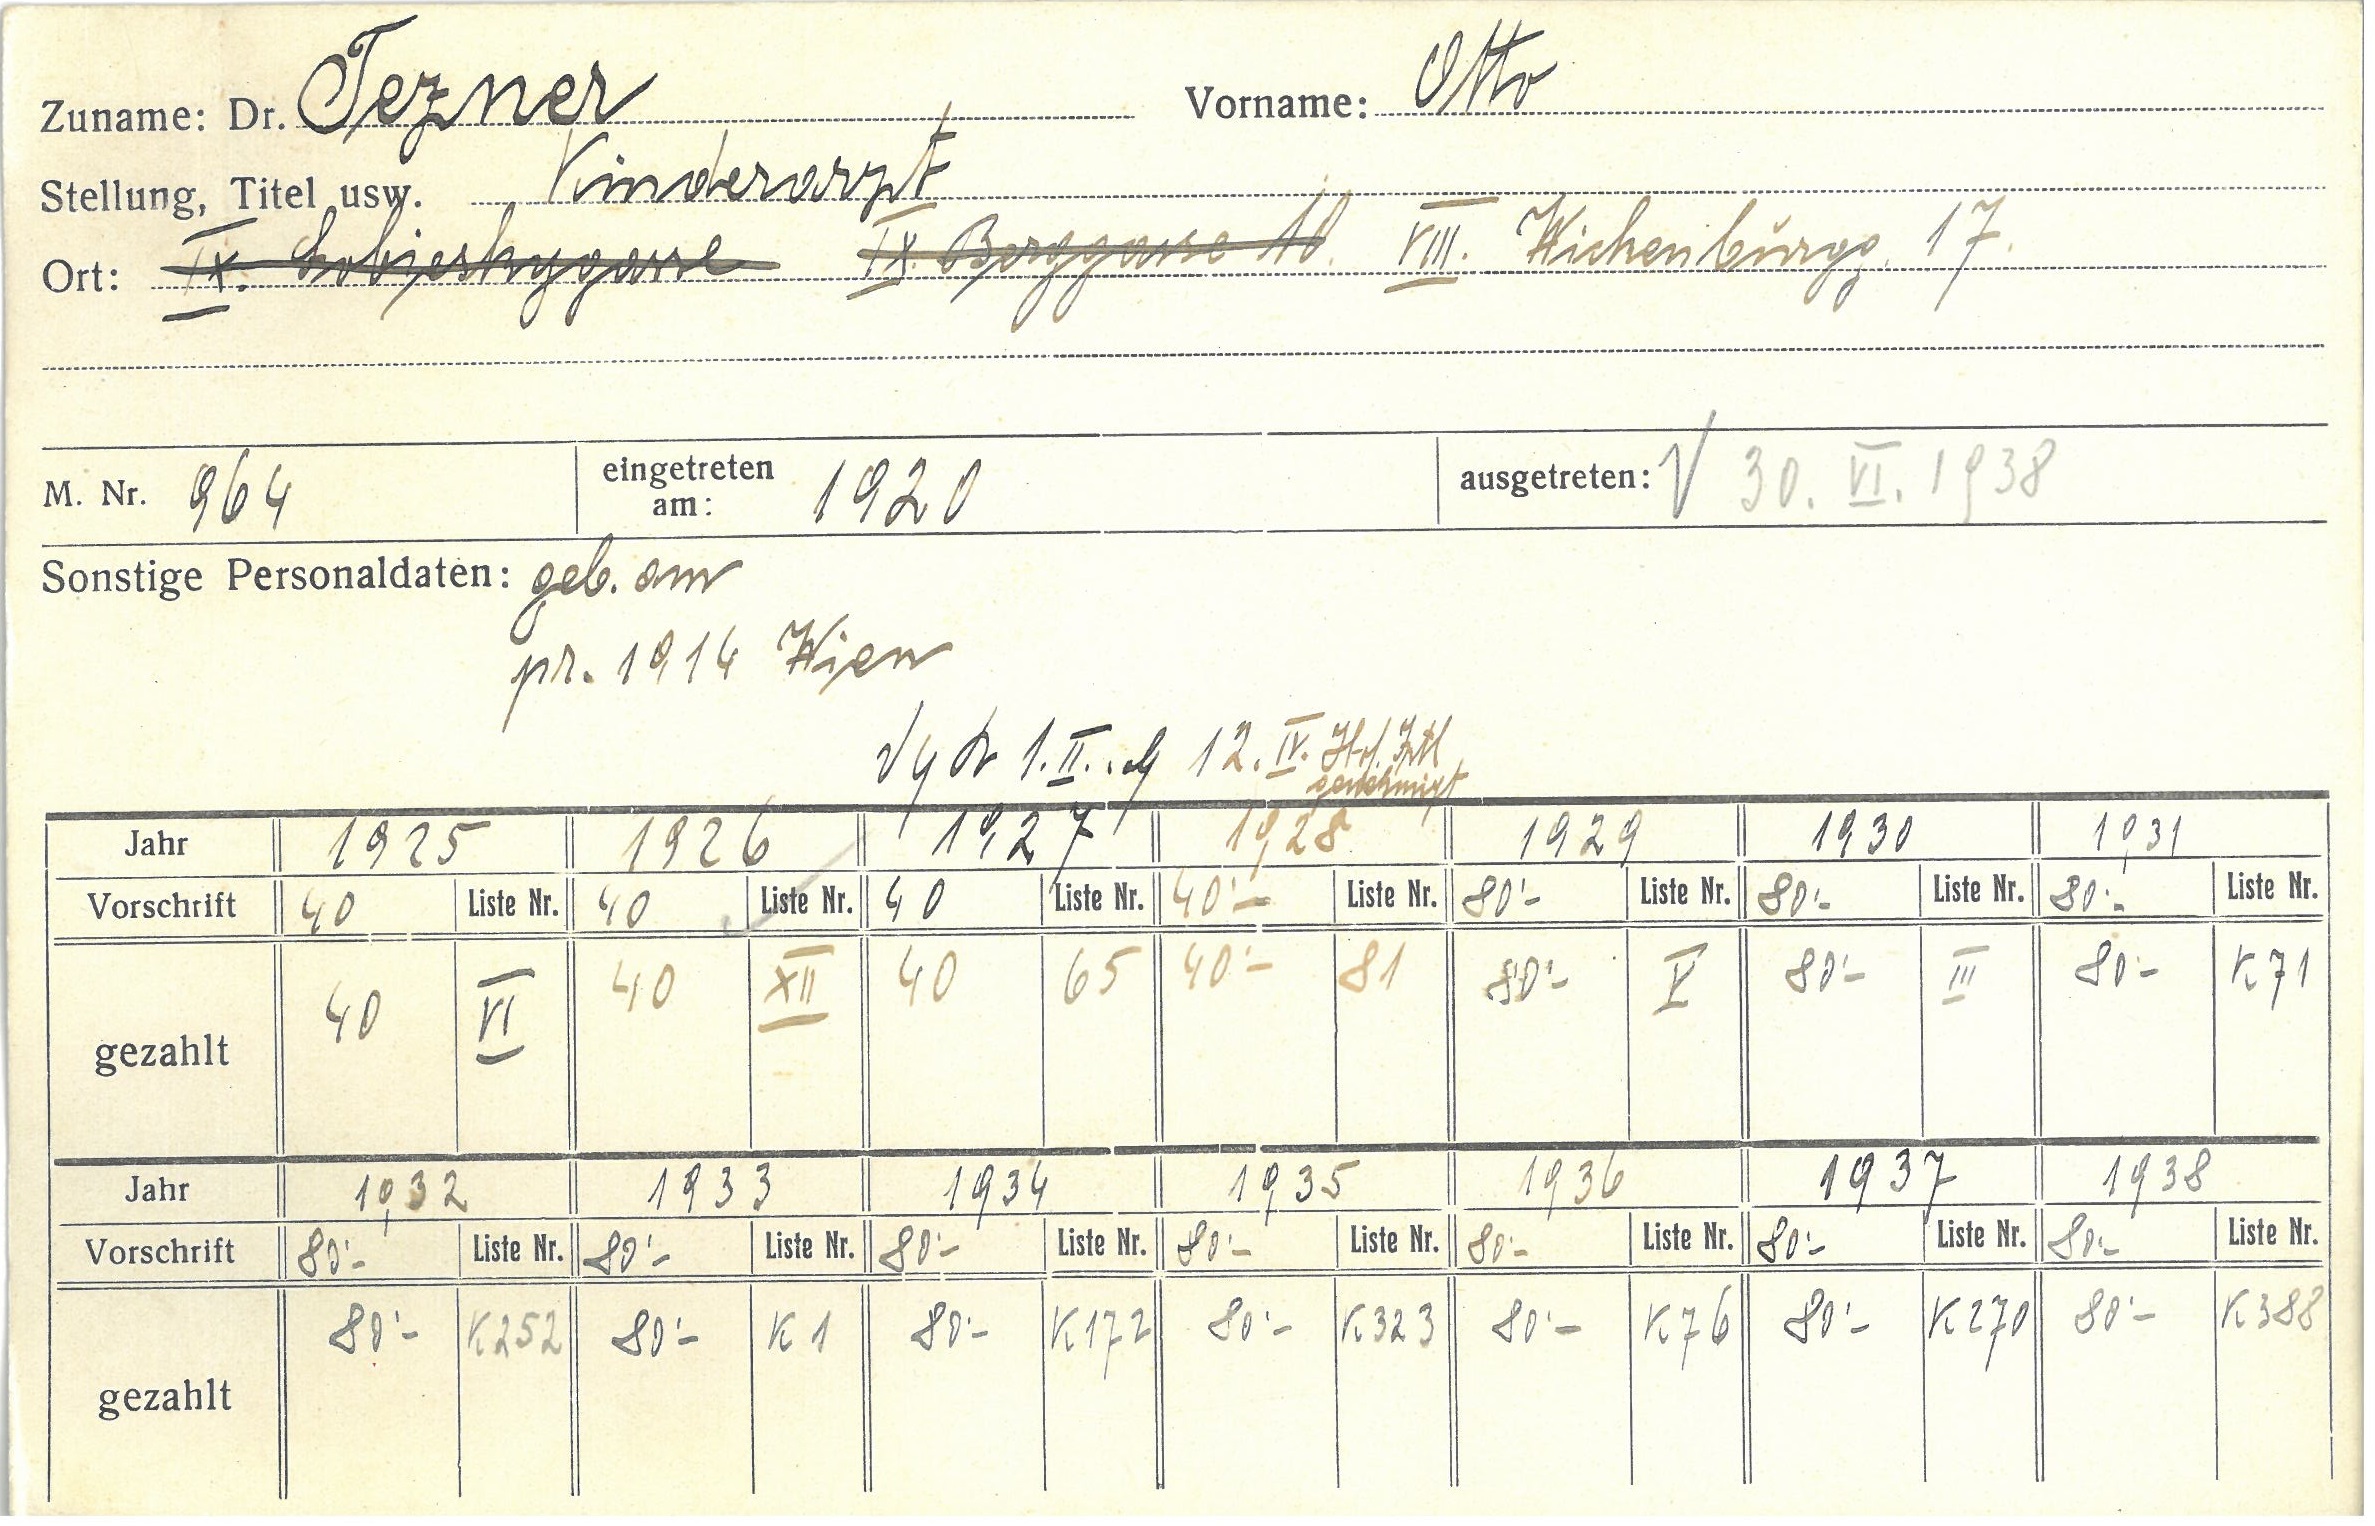 Zuname: Dr. Tezner Vorname: Otto
Stellung, Titel usw. Kinderarzt
Ort: IX. Sobieskygasse IX. Berggasse VIII. Wickenburgg. 17.
M. Nr. 964 eingetreten am: 1920 ausgetreten: 30. VI. 1938
Sonstige Personaldaten: geb. am
pr. 1914 Wien
1. II. 12. IV.
genehmigt
Jahr 1925 1926 1927 1928 1929 1930 1931
Vorschrift 40 Liste Nr. 40 Liste Nr. 40 Liste Nr. 40'- Liste Nr. 80'- Liste Nr. 80'- Liste Nr. 80'- Liste Nr.
gezahlt 40 VI 40 XII 40 65 40'- 81 80'- V 80'- III 80'- K 71
Jahr 1932 1933 1934 1935 1936 1937 1938
Vorschrift 80'- Liste Nr. 80'- Liste Nr. 80'- Liste Nr. 80'- Liste Nr. 80'- Liste Nr. 80'- Liste Nr. 80'- Liste Nr.
gezahlt 80'- K252 80'- K 1 80'- K172 80'- K323 80'- K76 80'- K270 80'- K388